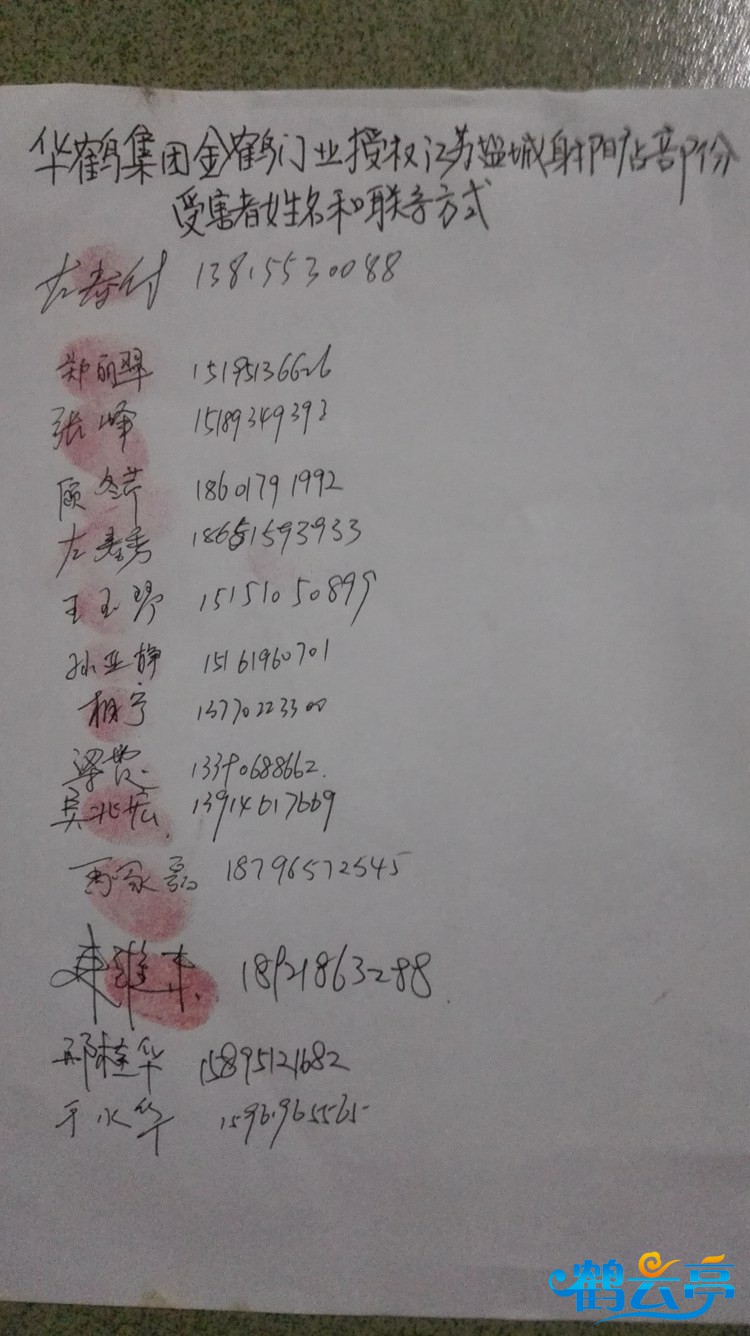 华鹤集团金鹤门业授权江苏盐城射阳店部份
受害者姓名和联系方式
左春付 13815530088
郑丽翠 15195136626
张峰 15189349393
顾冬芹 18601791992
左春秀 18651593933
王玉琴 15151050899
孙亚静 15161960701
相宁 13770223300
梁 13390688662.
吴兆宏. 13914617669
家磊 18796572545
18921863288
邢桂华 15895121682
于水华 15961965565
鹤云亭